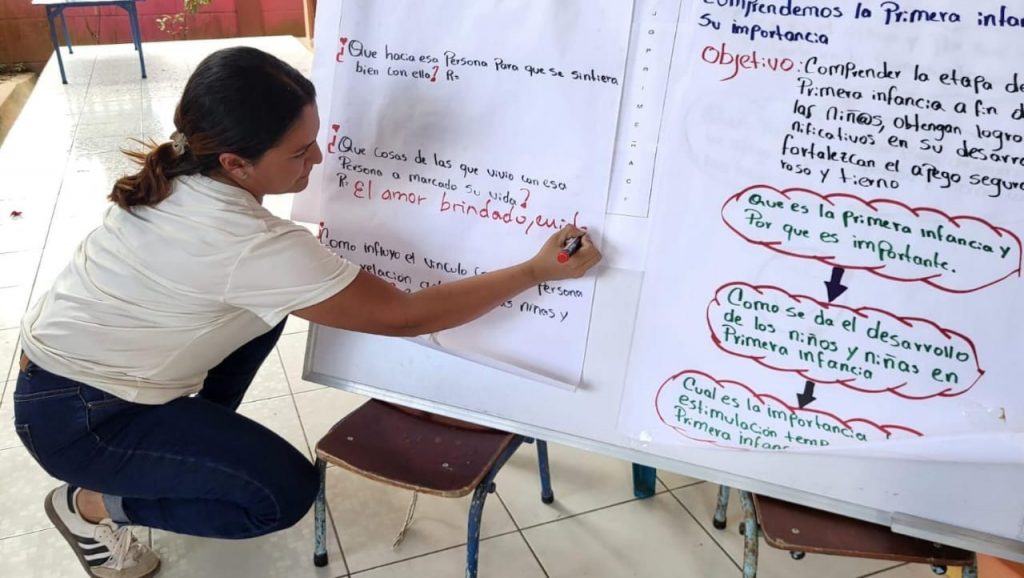 ¿Que hacia esa Persona Para que se sintiera
bien con ella? R:
¿Que Cosas de las que vivio con esa
Persona a marcado su vida?
R: El amor brindado, cuid
¿Como influyo el vinculo
relacion
Persona
niños y
Comprendemos la Primera infan
Su importancia
Objetivo: Comprender la etapa de
Primera infancia a fin d
las niñ@s, obtengan logro
nificativos en su desarro
fortalezcan el apego seguro
roso y tierno
Que es la Primera infancia y
Por que es importante.
Como se da el desarrollo
de los niños y niñas en
Primera infancia
Cual es la importancia
estimulación temp
Primera infanc